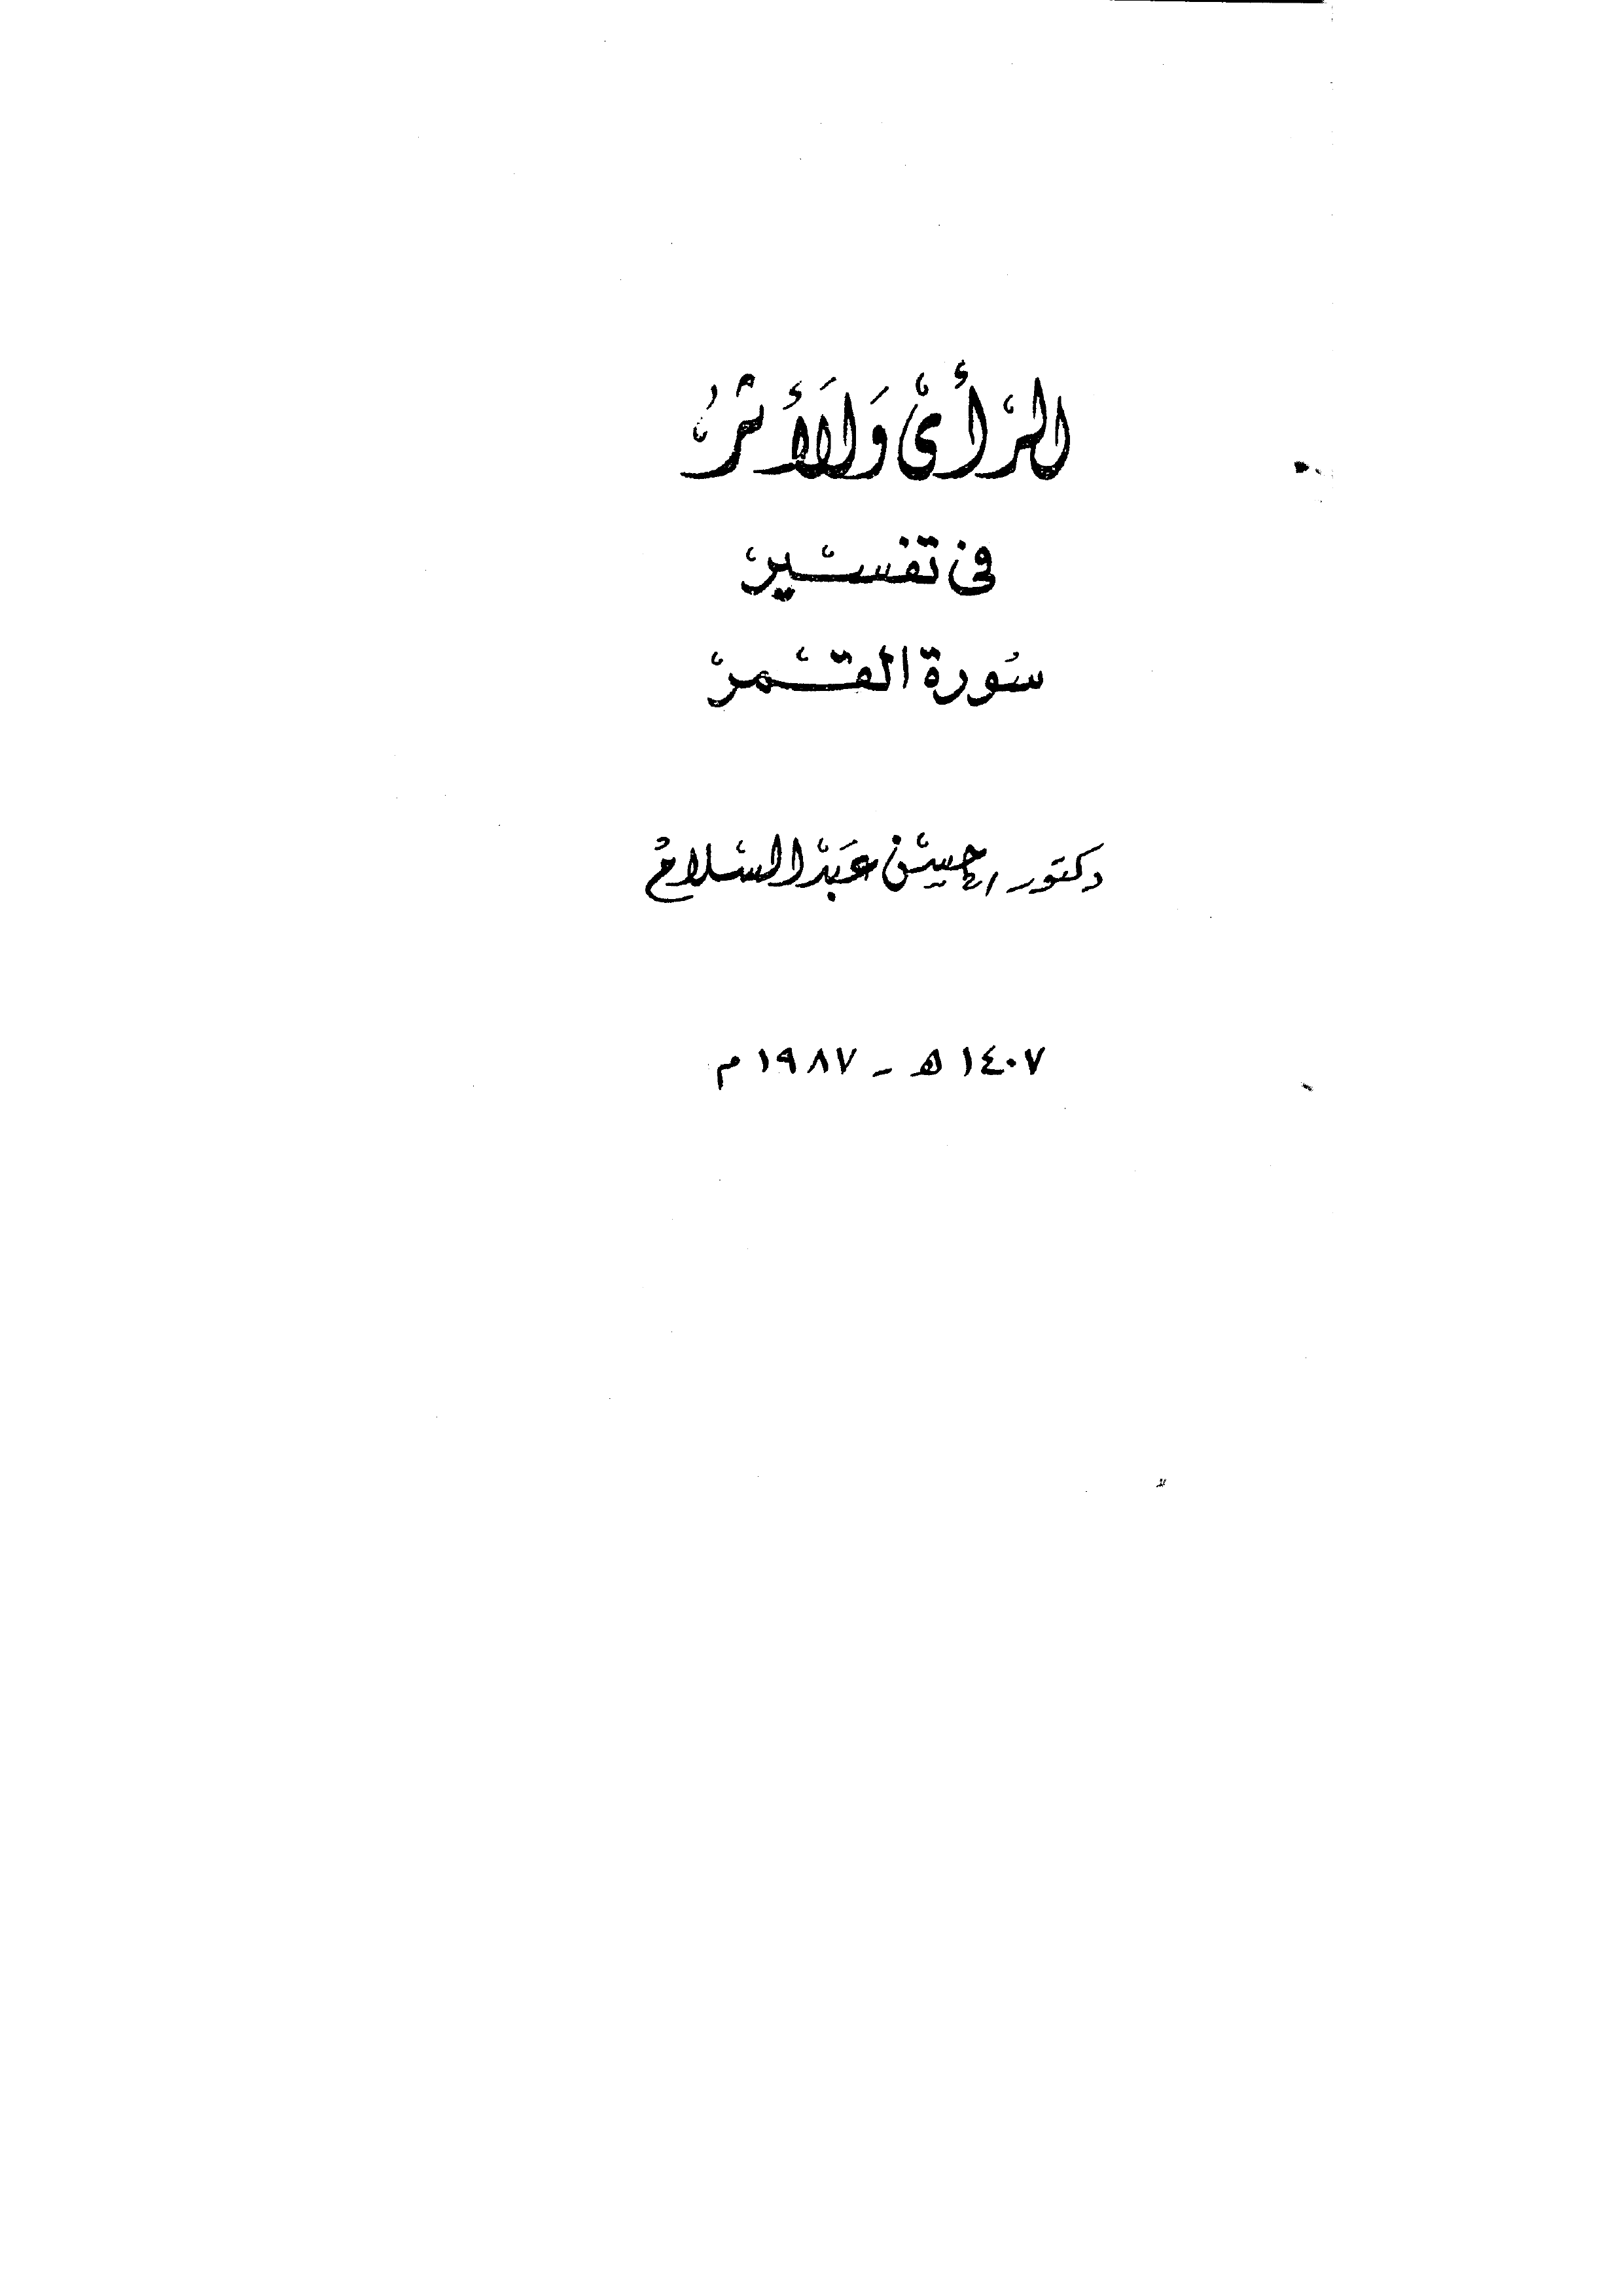 الرأى والأثر
فى تفسير
سورة القمر
دكتور / حسين عبد السلام
١٤٠٧ هـ - ١٩٨٧ م